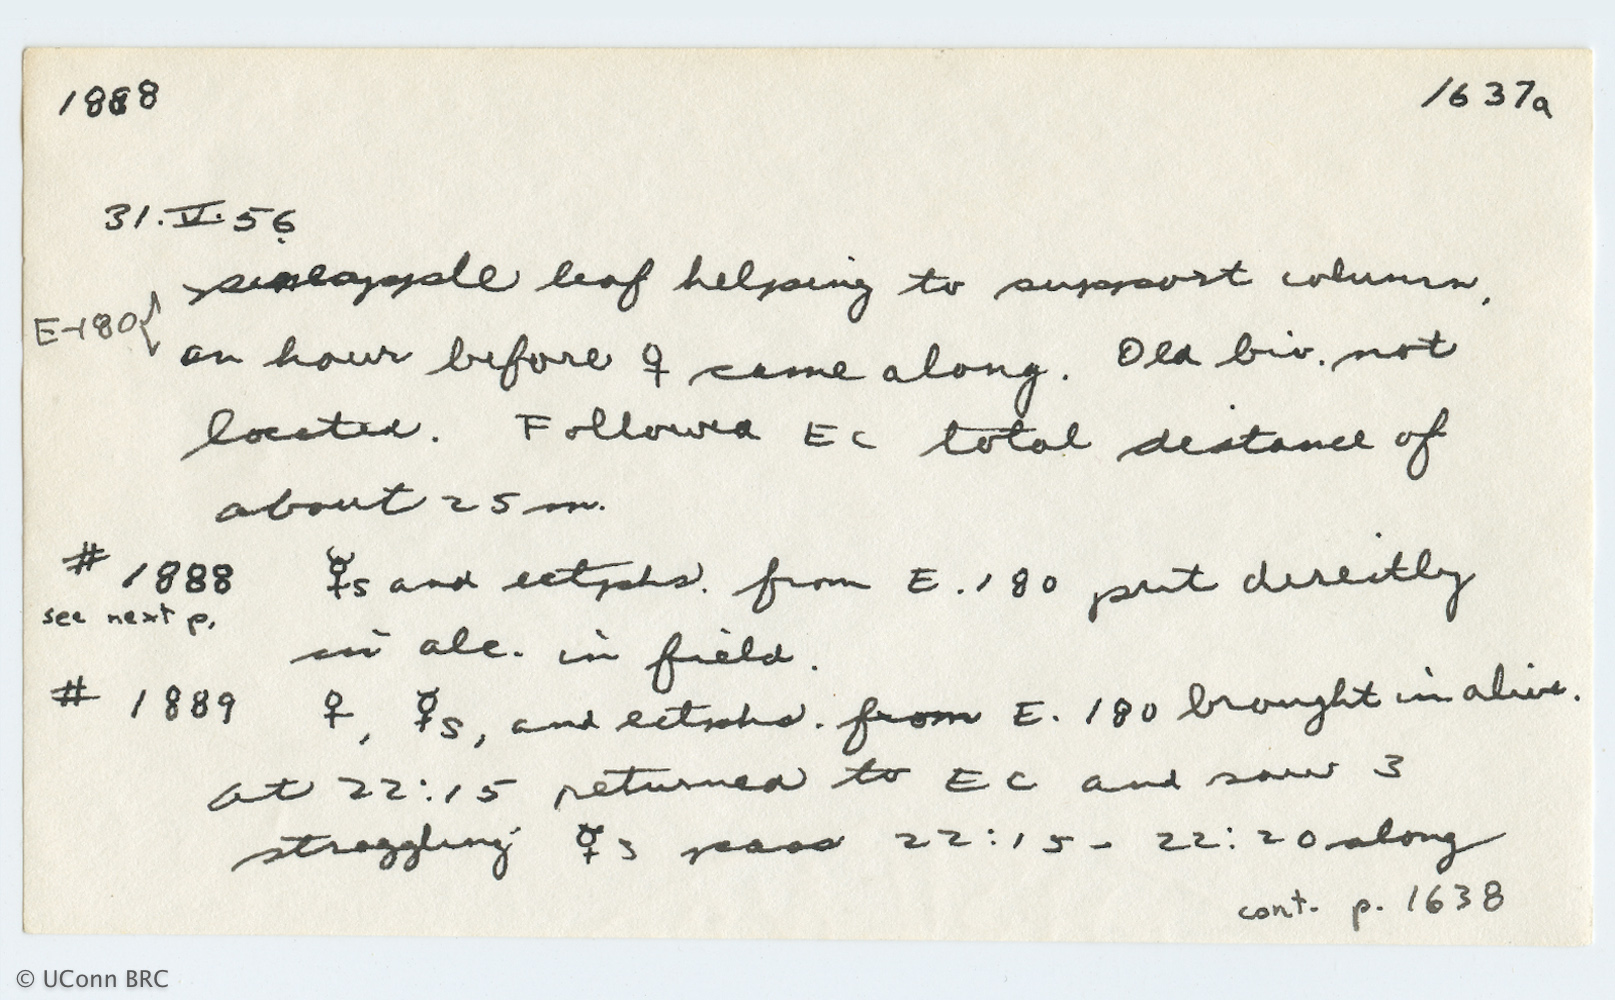 1888 1637a
31.V.56
pineapple leaf helping to support column,
E-180 { an hour before ♀ came along. Old biv. not
located. Followed EC total distance of
about 25 m.
# 1888 ☿s and ectphs. from E.180 put directly
see next p.
in alc. in field.
# 1889 ♀, ☿s, and ectphs. from E. 180 brought in alive.
At 22:15 returned to EC and saw 3
straggling ☿s pass 22:15 - 22:20 along
cont. p. 1638
© UConn BRC